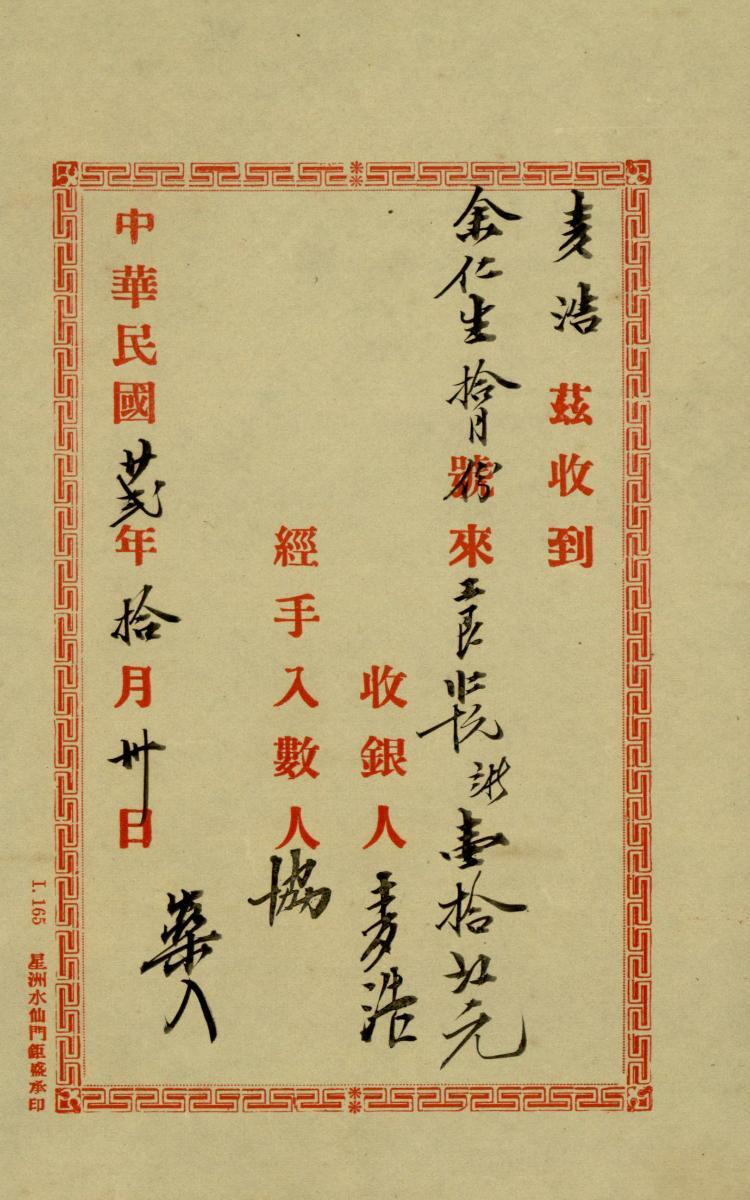 麦浩 茲收到
余仁生拾月份號來工艮 計壹拾 元
收銀人 麦浩
經手入數人 協
中華民國廿弍年拾月卅日
燊入
I. 165 星洲水仙門鉅盛承印